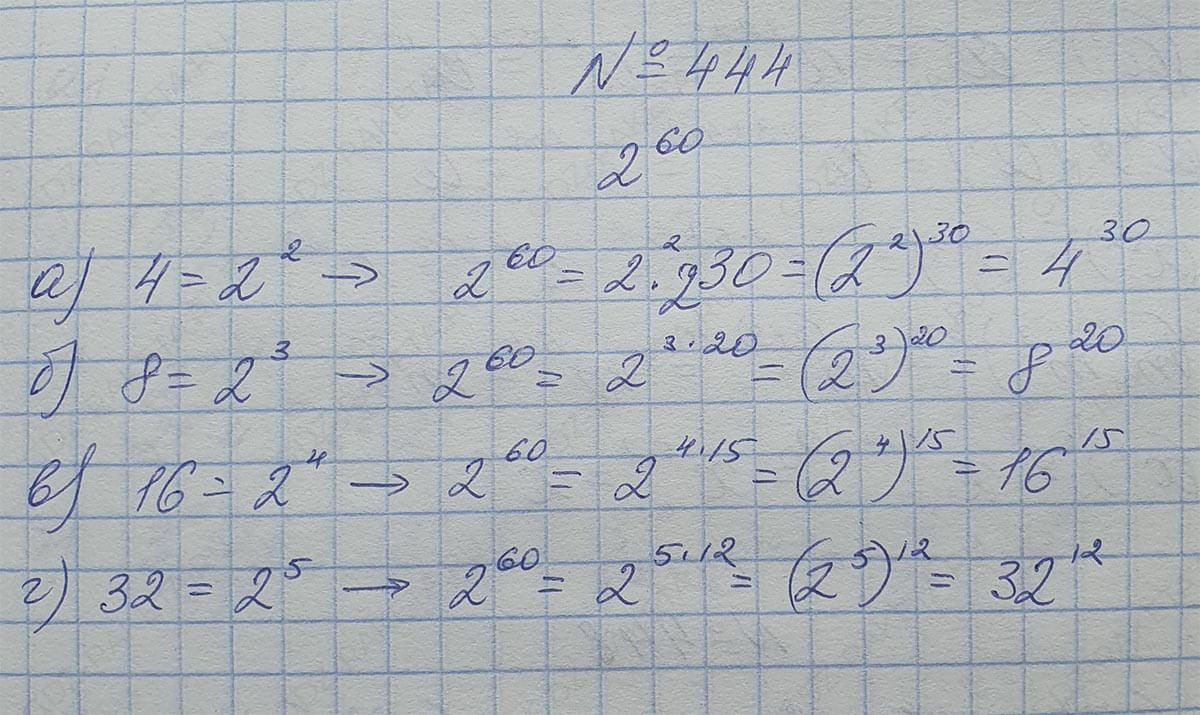 № 444
2^60
а) 4 = 2^2 → 2^60 = 2^2·230 = (2^2)^30 = 4^30
б) 8 = 2^3 → 2^60 = 2^3·20 = (2^3)^20 = 8^20
в) 16 = 2^4 → 2^60 = 2^4·15 = (2^4)^15 = 16^15
г) 32 = 2^5 → 2^60 = 2^5·12 = (2^5)^12 = 32^12